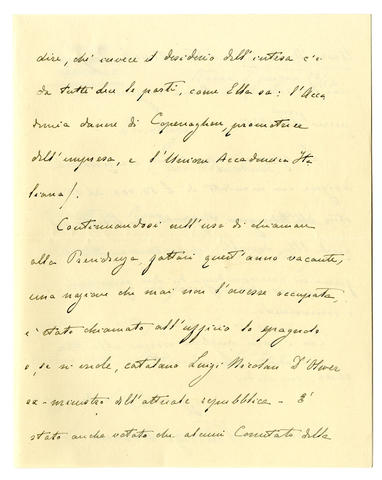 dire, chè invece il desiderio dell'intesa c'è
da tutte due le parti, come Ella sa: l'Acca
demia danese di Copenaghen, promotrice
dell'impresa, e l'Unione Accademica Ita
liana/.
Continuandosi nell'uso di chiamare
alla Presidenza, fattasi quest'anno vacante,
una nazione che mai non l'avesse occupata,
è stato chiamato all'ufficio lo spagnolo
o, se si vuole, catalano Luigi Nicolau D'Olwer
ex-ministro dell'attuale repubblica - È
stato anche votato che alcuni Comitato della